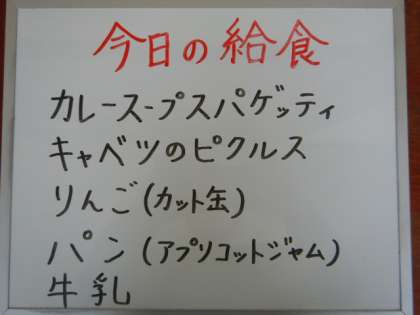 今日の給食
カレースープスパゲッティ
キャベツのピクルス
りんご(カット缶)
パン(アプリコットジャム)
牛乳